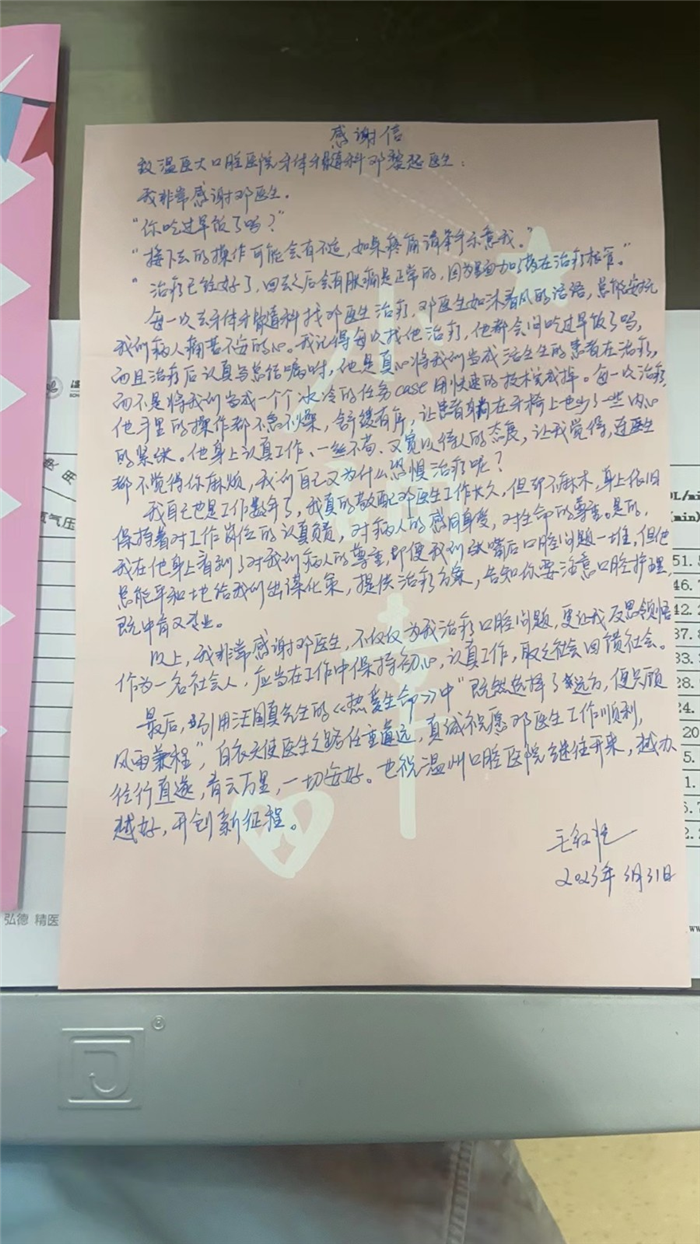 感谢信
致温医大口腔医院牙体牙髓科邓黎思医生：
我非常感谢邓医生。
“你吃过早饭了吗？”
“接下去的操作可能会有不适，如果疼痛请举手示意我。”
“治疗已经好了，回去之后会有胀痛是正常的，因为里面加了药在治疗根管。”
每一次去牙体牙髓科找邓医生治疗，邓医生如沐春风的话语，总能安抚
我们病人痛苦不安的心。我记得每次找他治疗，他都会问吃过早饭了吗，
而且治疗后认真与总结嘱咐，他是真心将我们当成活生生的患者在治疗，
而不是将我们当成一个个冰冷的任务case用快速的技术完成掉。每一次治疗，
他手里的操作都不急不燥，舒缓有序，让患者躺在牙椅上也少了一些内心
的紧张。他身上认真工作、一丝不苟、又宽以待人的态度，让我觉得，连医生
都不觉得你麻烦，我们自己又为什么恐惧治疗呢？
我自己也是工作数年了，我真的敬配邓医生工作大久，但却不麻木，身上依旧
保持着对工作岗位的认真负责，对病人的感同身受，对生命的尊重。是的，
我在他身上看到了对我们病人的尊重，即便我们缺嘴后口腔问题一堆，但他
总能平和地给我们出谋化策，提供治疗方案，告知你要注意口腔护理，
既中肯又专业。
以上，我非常感谢邓医生，不仅仅为我治疗口腔问题，更让我反思领悟
作为一名社会人，应当在工作中保持初心，认真工作，取之社会回馈社会。
最后，引用汪国真先生的《热爱生命》中“既然选择了远方，便只顾
风雨兼程”，白衣天使医生之路任重道远，真诚祝愿邓医生工作顺利，
径行直遂，青云万里，一切安好。也祝温州口腔医院继往开来，越办
越好，开创新征程。
2023年3月31日
弘德 精医